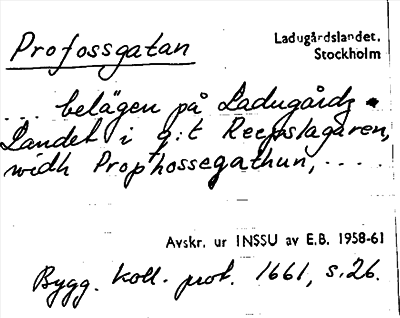 Profossgatan
Ladugårdslandet.
Stockholm
... belägen på Ladugårdz
Landet i q:t Reepslagaren,
widh Prophossegathun, .....
Avskr. ur INSSU av E.B. 1958-61
Bygg. Koll. prot. 1661, s. 26.